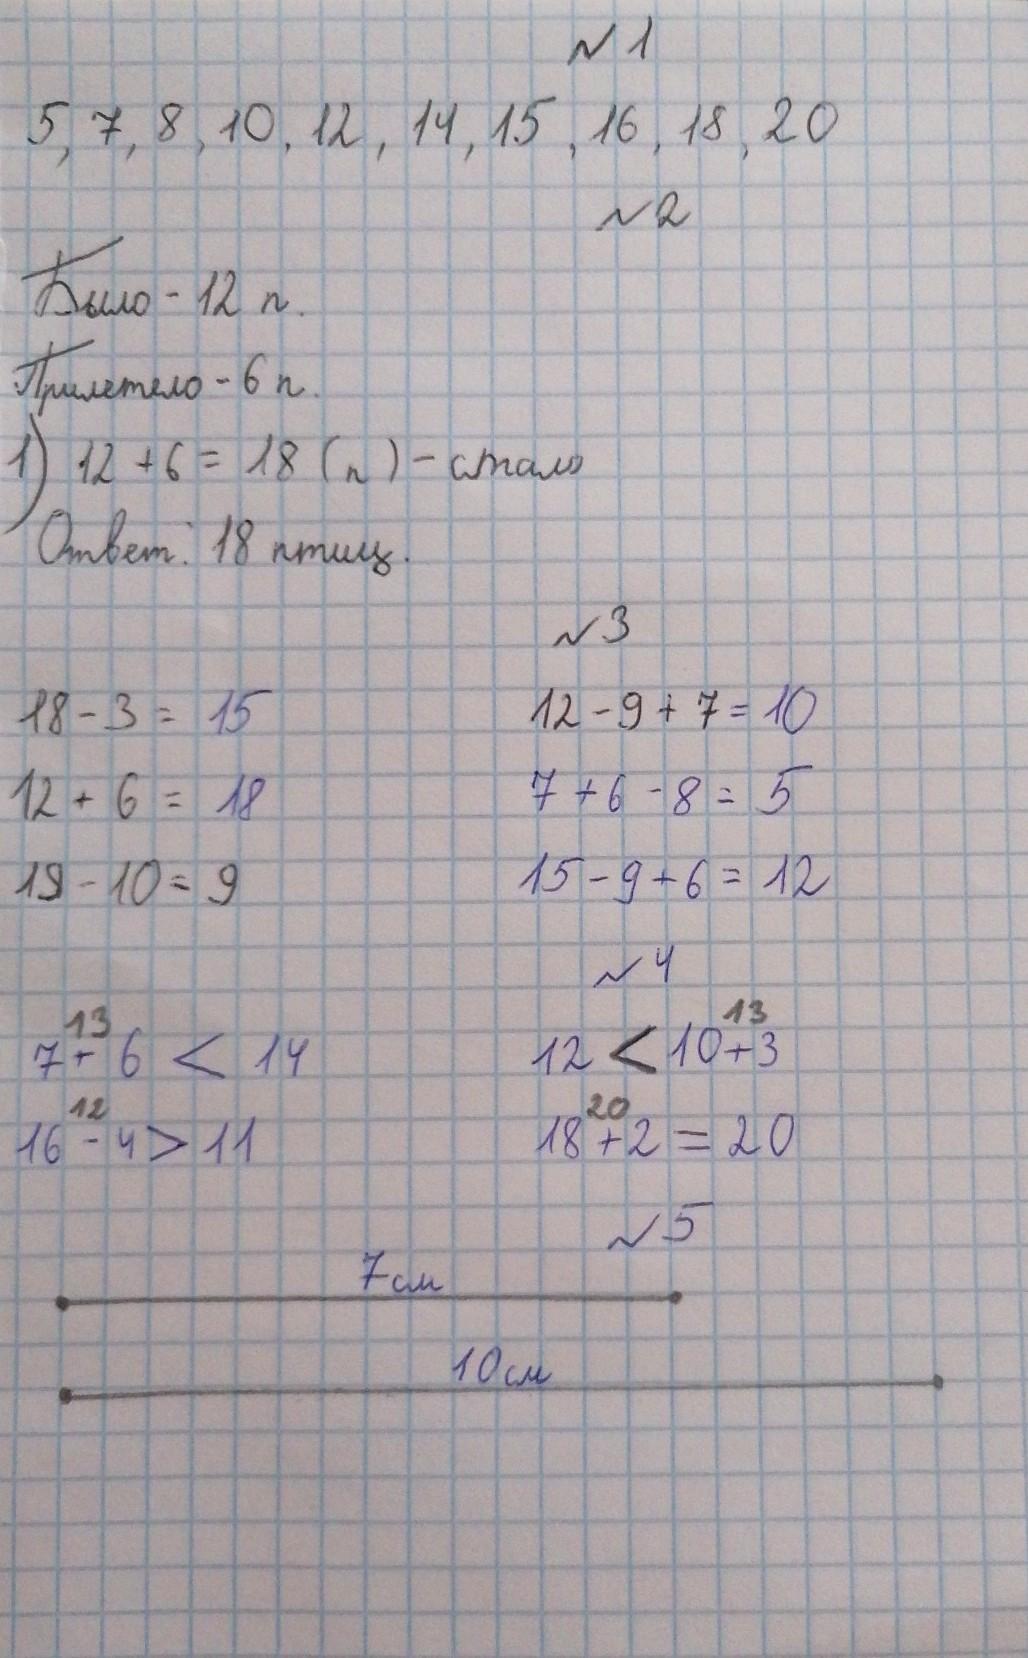 №1
5, 7, 8, 10, 12, 14, 15, 16, 18, 20
№2
Было - 12 п.
Прилетело - 6 п.
1) 12 + 6 = 18 (п) - стало
Ответ: 18 птиц.
№3
18 - 3 = 15 12 - 9 + 7 = 10
12 + 6 = 18 7 + 6 - 8 = 5
19 - 10 = 9 15 - 9 + 6 = 12
№4
13 13
7 + 6 < 14 12 < 10 + 3
12 20
16 - 4 > 11 18 + 2 = 20
№5
7 см
10 см